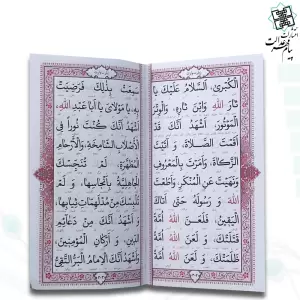 انتشارات
پیام عدالت
الْکُبْریٰ، اَلسَّلامُ عَلَیْکَ یا
ثارَ اللهِ وَابْنَ ثارِهِ، وَالْوِتْرَ
الْمَوْتُورَ، اَشْهَدُ اَنَّکَ قَدْ
اَقَمْتَ الصَّلاةَ، وَ آتَیْتَ
الزَّکاةَ، وَاَمَرْتَ بِالْمَعْرُوفِ
وَنَهَیْتَ عَنِ الْمُنْکَرِ، وَاَطَعْتَ
اللهَ وَ رَسُولَهُ حَتّیٰ اَتاکَ
الْیَقینُ، فَلَعَنَ اللهُ اُمَّةً
قَتَلَتْکَ، وَ لَعَنَ اللهُ اُمَّةً
ظَلَمَتْکَ، وَ لَعَنَ اللهُ اُمَّةً
سَمِعَتْ بِذٰلِکَ فَرَضِیَتْ
بِهِ، یا مَوْلایَ یا اَبا عَبْدِ اللهِ،
اَشْهَدُ اَنَّکَ کُنْتَ نُوراً فِی
الْاَصْلابِ الشّامِخَةِ، وَالْاَرْحامِ
الْمُطَهَّرَةِ، لَمْ تُنَجِّسْکَ
الْجاهِلِیَّةُ بِاَنْجاسِها، وَ لَمْ
تُلْبِسْکَ مِنْ مُدْلَهِمّاتِ ثِیابِها،
وَ اَشْهَدُ اَنَّکَ مِنْ دَعائِمِ
الدّینِ، وَ اَرْکانِ الْمُؤْمِنینَ،
وَ اَشْهَدُ اَنَّکَ الْاِمامُ الْبَرُّ التَّقِیُّ